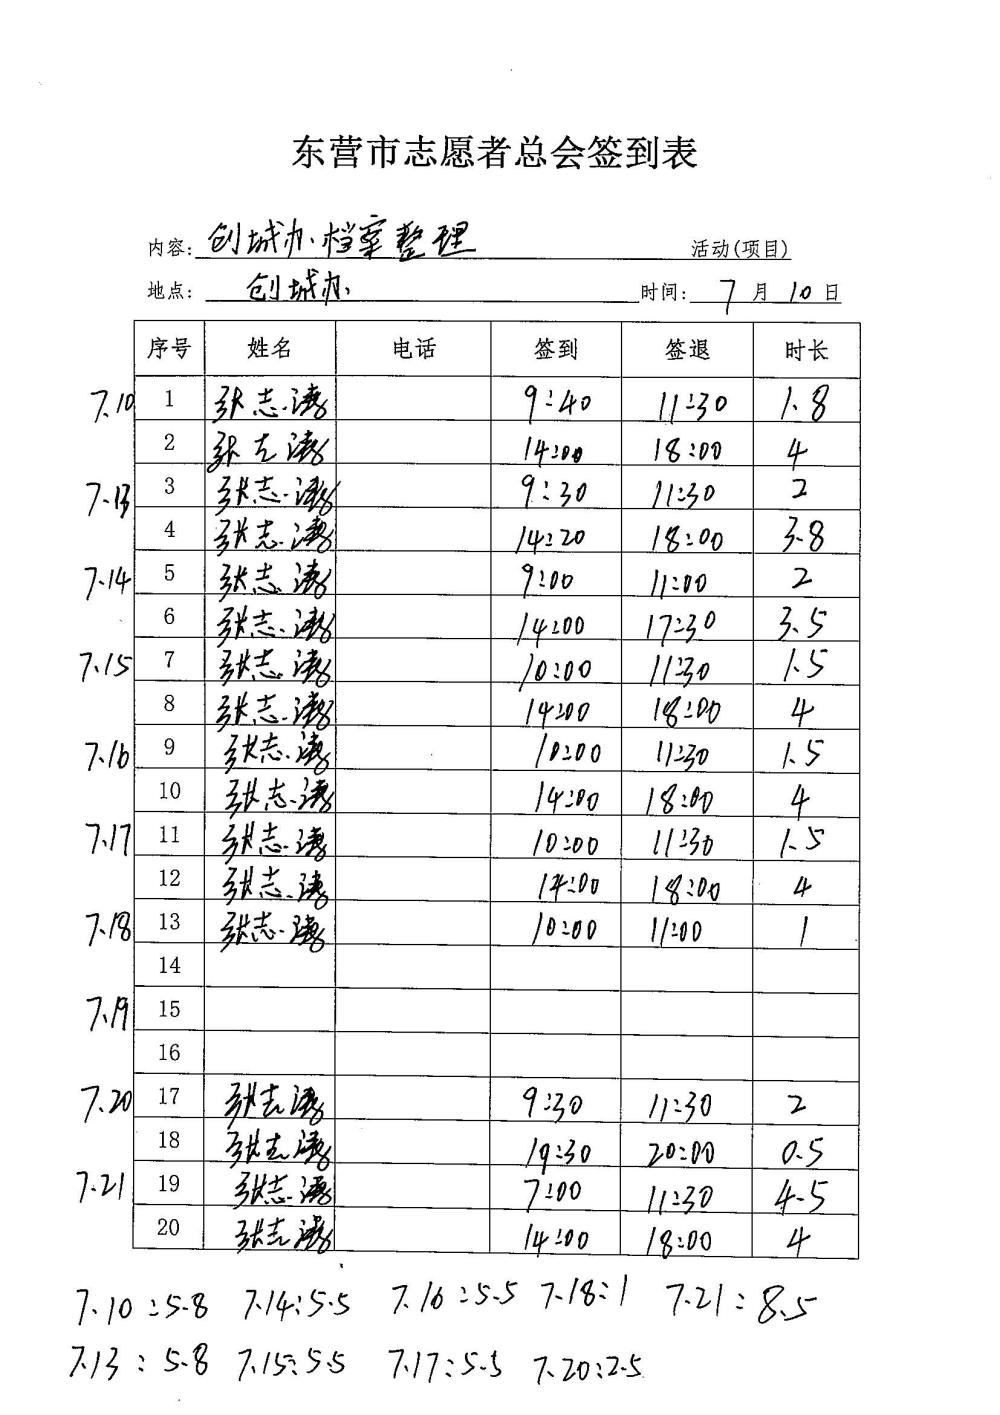 东营市志愿者总会签到表
内容: 创城办档案整理 活动(项目)
地点: 创城办 时间: 7 月 10 日
序号 姓名 电话 签到 签退 时长
7.10 1 张志涛 9:40 11:30 1.8
2 张志涛 14:00 18:00 4
7.13 3 张志涛 9:30 11:30 2
4 张志涛 14:20 18:00 3.8
7.14 5 张志涛 9:00 11:00 2
6 张志涛 14:00 17:30 3.5
7.15 7 张志涛 10:00 11:30 1.5
8 张志涛 14:00 18:00 4
7.16 9 张志涛 10:00 11:30 1.5
10 张志涛 14:00 18:00 4
7.17 11 张志涛 10:00 11:30 1.5
12 张志涛 14:00 18:00 4
7.18 13 张志涛 10:00 11:00 1
14
7.19 15
16
7.20 17 张志涛 9:30 11:30 2
18 张志涛 19:30 20:00 0.5
7.21 19 张志涛 7:00 11:30 4.5
20 张志涛 14:00 18:00 4
7.10:5.8 7.14:5.5 7.16:5.5 7.18:1 7.21:8.5
7.13:5.8 7.15:5.5 7.17:5.5 7.20:2.5